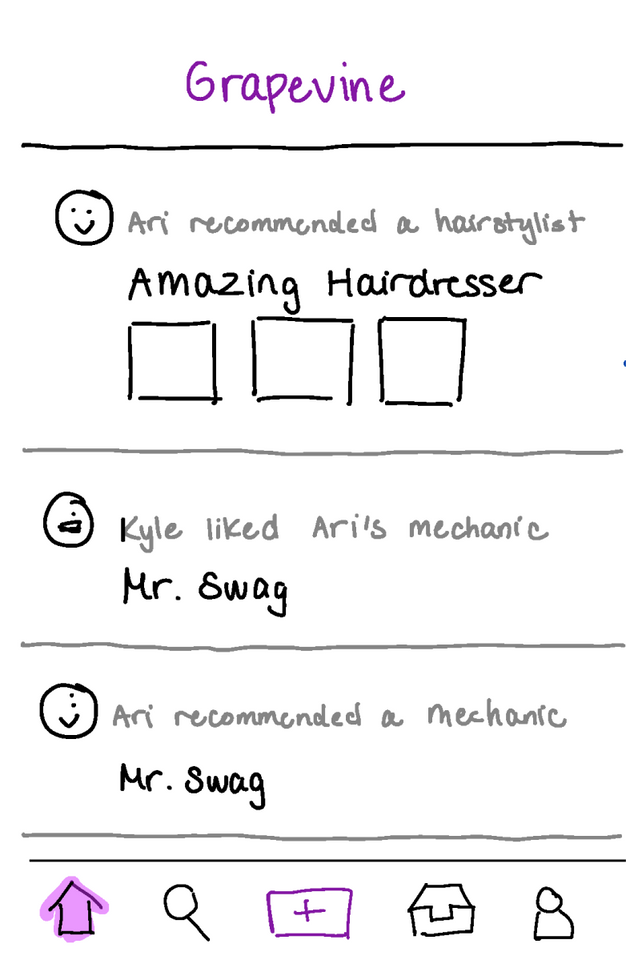 Grapevine
Ari recommended a hairstylist
Amazing Hairdresser
Kyle liked Ari's mechanic
Mr. Swag
Ari recommended a mechanic
Mr. Swag